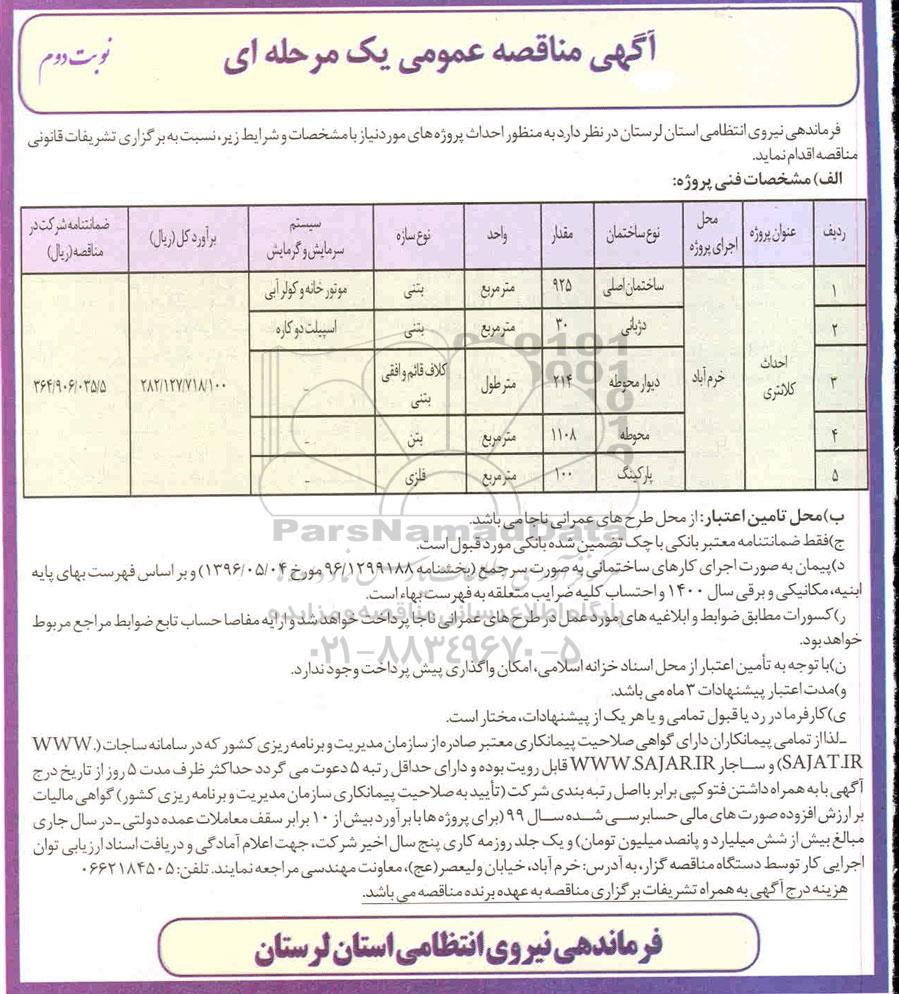 آگهی مناقصه عمومی یک مرحله ای
نوبت دوم
فرماندهی نیروی انتظامی استان لرستان در نظر دارد به منظور احداث پروژه های مورد نیاز با مشخصات و شرایط زیر، نسبت به برگزاری تشریفات قانونی
مناقصه اقدام نماید.
الف) مشخصات فنی پروژه:
ردیف عنوان پروژه محل اجرای پروژه نوع ساختمان مقدار واحد نوع سازه سیستم سرمایش و گرمایش برآورد کل (ریال) ضمانتنامه شرکت در مناقصه (ریال)
۱ احداث کلانتری خرم آباد ساختمان اصلی ۹۲۵ متر مربع بتنی موتور خانه و کولر آبی ۲۸۲/۱۲۷/۷۱۸/۱۰۰ ۳۶۴/۹۰۶/۰۳۵/۵
۲ دژبانی ۳۰ متر مربع بتنی اسپیلت دو کاره
۳ دیوار محوطه ۲۱۴ متر طول کلاف قائم و افقی بتنی -
۴ محوطه ۱۱۰۸ متر مربع بتن -
۵ پارکینگ ۱۰۰ متر مربع فلزی -
ب) محل تامین اعتبار: از محل طرح های عمرانی ناجا می باشد.
ج) فقط ضمانتنامه معتبر بانکی یا چک تضمین شده بانکی مورد قبول است.
د) پیمان به صورت اجرای کارهای ساختمانی به صورت سرجمع (بخشنامه ۹۶/۱۲۹۹۱۸۸ مورخ ۱۳۹۶/۰۵/۰۴) و بر اساس فهرست بهای پایه
ابنیه، مکانیکی و برقی سال ۱۴۰۰ و احتساب کلیه ضرایب متعلقه به فهرست بهاء است.
ر) کسورات مطابق ضوابط و ابلاغیه های مورد عمل در طرح های عمرانی ناجا پرداخت خواهد شد و ارایه مفاصا حساب تابع ضوابط مراجع مربوط
خواهد بود.
ن) با توجه به تأمین اعتبار از محل اسناد خزانه اسلامی، امکان واگذاری پیش پرداخت وجود ندارد.
و) مدت اعتبار پیشنهادات ۳ ماه می باشد.
ی) کارفرما در رد یا قبول تمامی و یا هر یک از پیشنهادات، مختار است.
ـ لذا از تمامی پیمانکاران دارای گواهی صلاحیت پیمانکاری معتبر صادره از سازمان مدیریت و برنامه ریزی کشور که در سامانه ساجات (WWW.
SAJAT.IR) و ساجار WWW.SAJAR.IR قابل رویت بوده و دارای حداقل رتبه ۵ دعوت می گردد حداکثر ظرف مدت ۵ روز از تاریخ درج
آگهی با به همراه داشتن فتوکپی برابر با اصل رتبه بندی شرکت (تأیید به صلاحیت پیمانکاری سازمان مدیریت و برنامه ریزی کشور) گواهی مالیات
بر ارزش افزوده صورت های مالی حسابرسی شده سال ۹۹ (برای پروژه ها با برآورد بیش از ۱۰ برابر سقف معاملات عمده دولتی ـ در سال جاری
مبالغ بیش از شش میلیارد و پانصد میلیون تومان) و یک جلد روزمه کاری پنج سال اخیر شرکت، جهت اعلام آمادگی و دریافت اسناد ارزیابی توان
اجرایی کار توسط دستگاه مناقصه گزار، به آدرس: خرم آباد، خیابان ولیعصر (عج)، معاونت مهندسی مراجعه نمایند. تلفن: ۰۶۶۲۱۸۴۵۰۵
هزینه درج آگهی به همراه تشریفات برگزاری مناقصه به عهده برنده مناقصه می باشد.
فرماندهی نیروی انتظامی استان لرستان
ParsNamadData
پایگاه اطلاع رسانی مناقصه و مزایده
۰۲۱-۸۸۳۴۹۶۷۰-۵